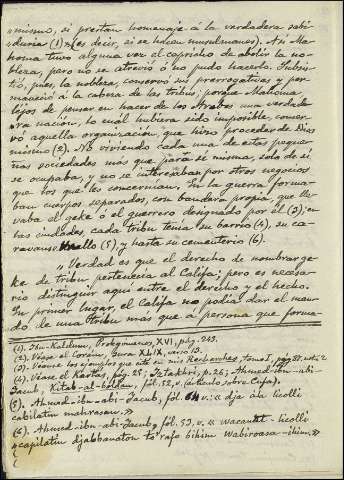 "mismo, si prestan homenaje á la verdadera sabi-
"duria (1)" (es decir, si se hacian musulmanes). Asi Ma-
homa tuvo alguna vez el capricho de abolir la no-
bleza, pero no se atrevió ó no pudo hacerlo. Subsis-
tió, pues, la nobleza; conservó sus prerrogativas y per-
maneció á la cabeza de las tribus; porque Mahoma,
lejos de pensar en hacer de los Arabes una verdade-
ra nación, lo cuál hubiera sido imposible, conser-
vó aquella organización que hizo proceder de Dios
mismo (2). No viviendo cada una de estas peque-
ñas sociedades más que para sí misma, sola de sí
se ocupaba, y no se interesaban por otros negocios
que los que les concernian. En la guerra forma-
ban cuerpos separados, con bandera propia, que lle-
vaba el geke ó el guerrero designado por él (3); en
las ciudades, cada tribu tenia su barrio (4), su ca-
ravansrallo (5), y hasta su cementerio (6).
"Verdad es que el derecho de nombrar ge-
ke de tribu pertenecia al Califa; pero es necesa-
rio distinguir aqui entre el derecho y el hecho.
En primer lugar, el Califa no podia dar el man-
do de una tribu más que á persona que forma-
(1). Ibn-Kaldun, Prolegómenos, XVI, pág. 243.
(2). Véase el Corán, Sura XLIX, verso 13.
(3). Véanse los ejemplos que cité en mis Recherches, tomo I, pág. 87, nota 2
(4). Véase el Kartás, pág. 25; Iztakhri, p. 26; Ahmed-ibn-abi-
Jacub, Kitab-al-boldan, fól. 52, v. (articulo sobre Cufa).
(5). Ahmed-ibn-abi-Jacub, fol. 64 v.: « dja ála licolli
cabilatin mahrasan.»
(6). Ahmed-ibn-abi-Jacub, fól. 53, v. « wacanat-licolli
"capilatin djabbanaton to'rafo bihim wabiroasa-ihim.»